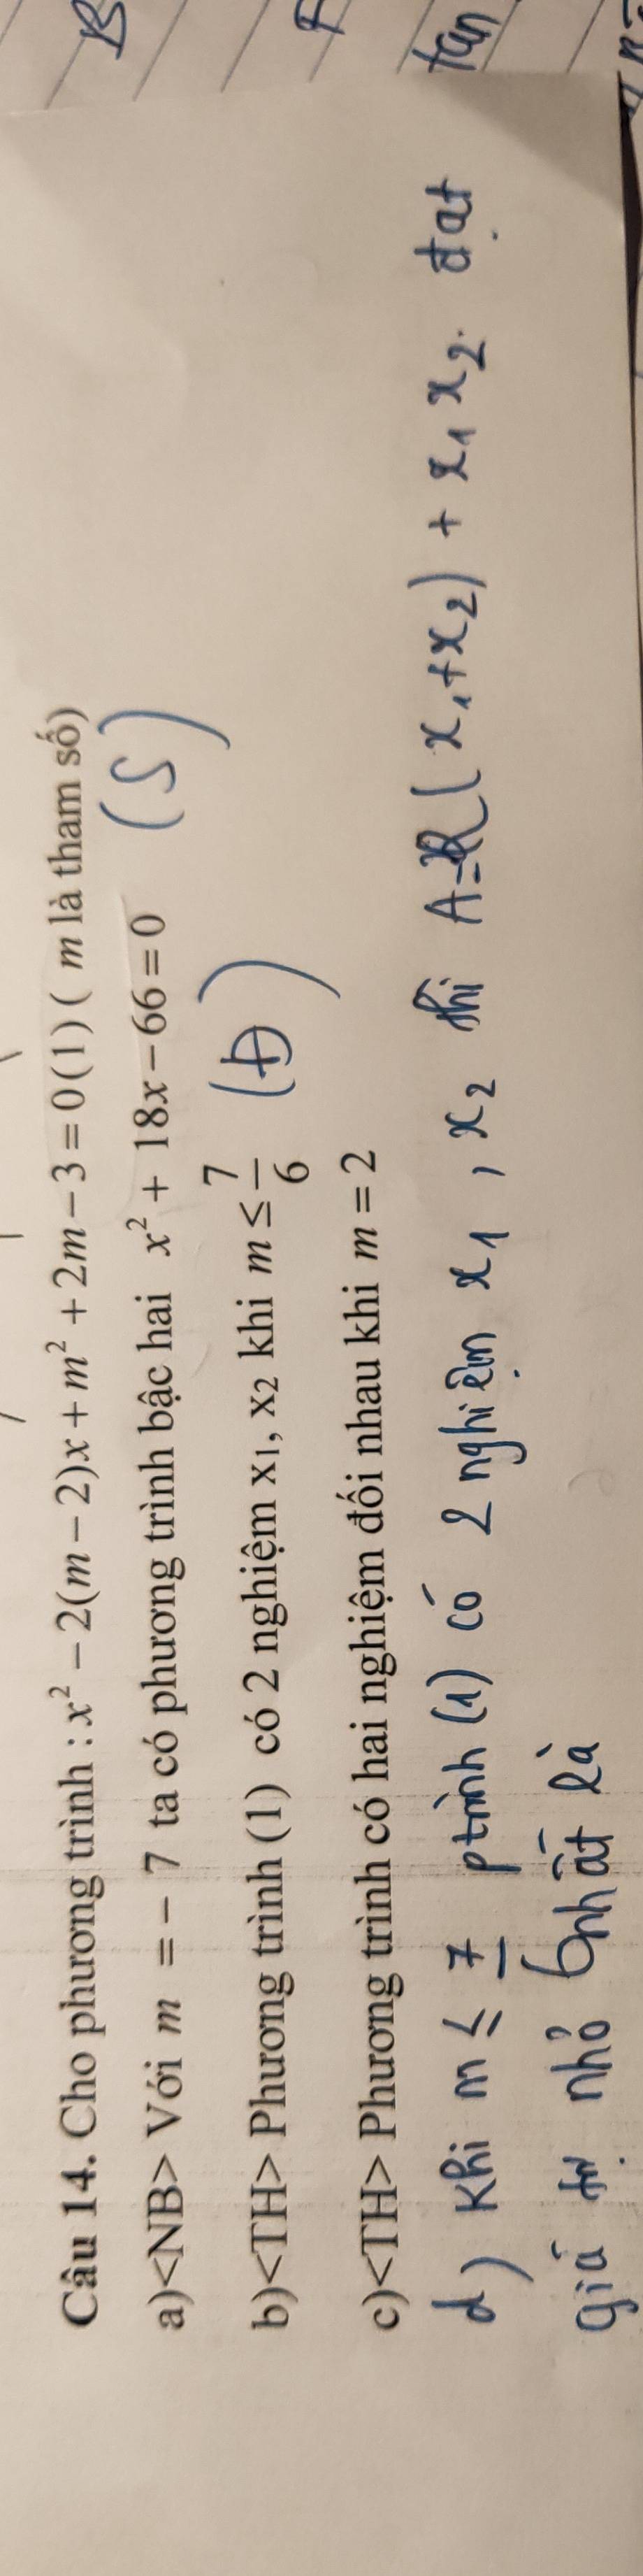 Câu 14. Cho phương trình : x² − 2(m − 2)x + m² + 2m − 3 = 0 (1) ( m là tham số)
a)<NB> Với m = − 7 ta có phương trình bậc hai x² + 18x − 66 = 0 (S)
b)<TH> Phương trình (1) có 2 nghiệm x₁, x₂ khi m ≤ 7/6 (Đ)
c)<TH> Phương trình có hai nghiệm đối nhau khi m = 2
d) Khi m ≤ 7/6 ptrình (1) có 2 nghiệm x₁, x₂ thì A = (x₁+x₂) + x₁x₂ đạt
giá trị nhỏ nhất là